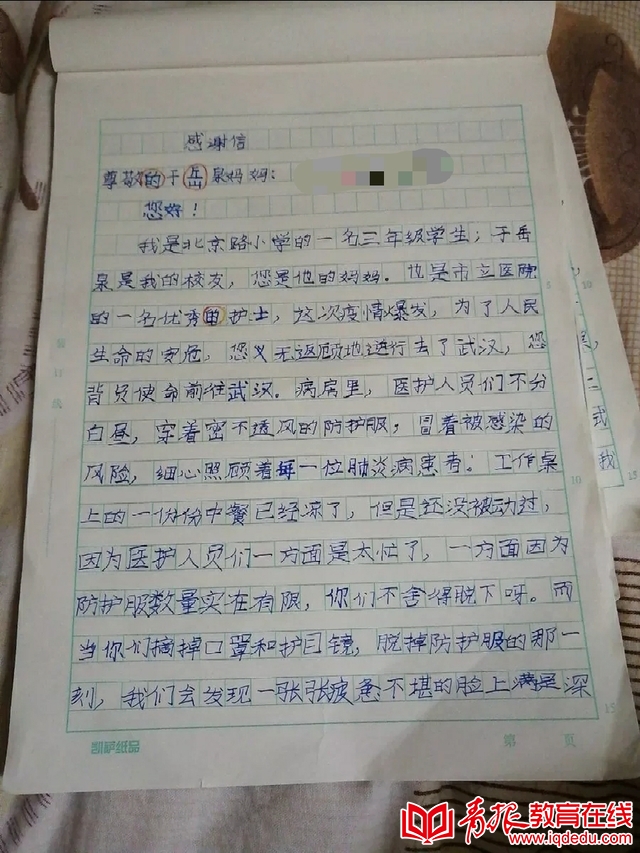 感谢信
尊敬的于岳泉妈妈：
您好！
我是北京路小学的一名三年级学生；于岳
泉是我的校友，您是他的妈妈。也是市立医院
的一名优秀的护士，这次疫情爆发，为了人民
生命的安危，您义无返顾地逆行去了武汉，您
背负使命前往武汉。病房里，医护人员们不分
白昼，穿着密不透风的防护服，冒着被感染的
风险，细心照顾着每一位肺炎病患者。工作桌
上的一份份中餐已经凉了，但是还没被动过，
因为医护人员们一方面是太忙了，一方面因为
防护服数量实在有限，你们不舍得脱下呀。而
当你们摘掉口罩和护目镜，脱掉防护服的那一
刻，我们会发现一张张疲惫不堪的脸上满是深
5
10
15
凯萨纸品
第 页
10
15
二
式
我
青报教育在线
www.iqdedu.com